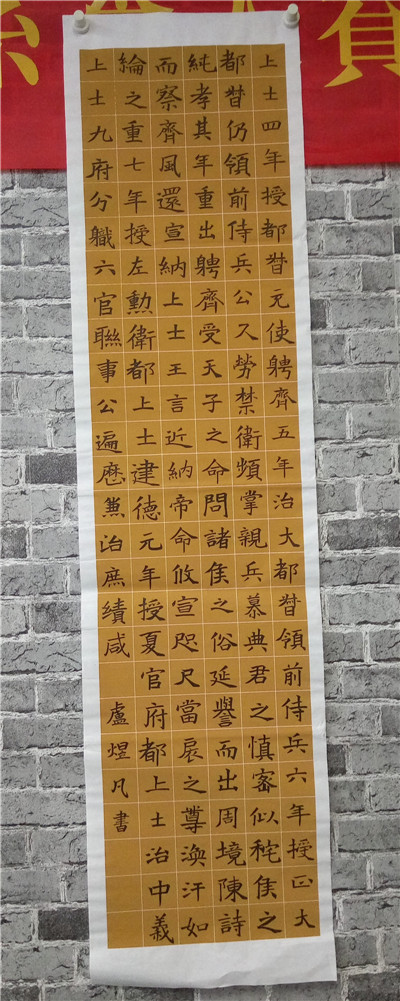 上士四年授都督充使聘齊五年治大都督領前侍兵六年授正大
都督仍領前侍兵公久勞禁衛頻掌親兵慕典君之慎審似秺侯之
純孝其年重出聘齊受天子之命問諸侯之俗延譽而出周境陳詩
而察齊風還宣納上士王言近納帝命攸宣咫尺當扆之尊渙汗如
綸之重七年授左勳衛都上士建德元年授夏官府都上士治中義
上士九府分職六官聯事公遍歷兼治庶績咸
盧煜凡書